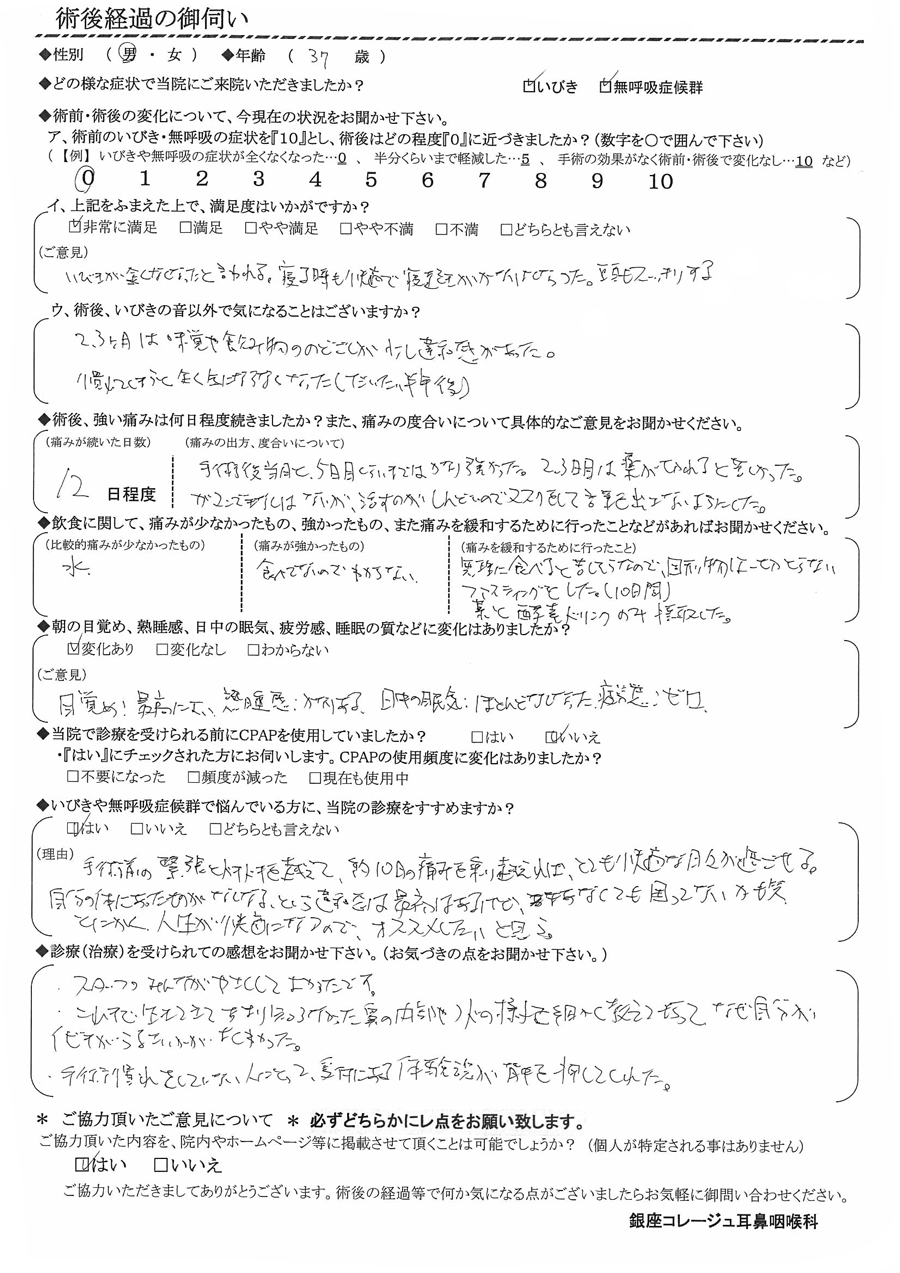 術後経過の御伺い
◆性別　（ 男 ・ 女 ）　◆年齢　（ 37 歳 ）
◆どの様な症状で当院にご来院いただきましたか？　☑いびき　☑無呼吸症候群
◆術前・術後の変化について、今現在の状況をお聞かせ下さい。
ア、術前のいびき・無呼吸の症状を『10』とし、術後はどの程度『0』に近づきましたか？（数字を〇で囲んで下さい）
（ 【例】 いびきや無呼吸の症状が全くなくなった…0 、 半分くらいまで軽減した…5 、 手術の効果がなく術前・術後で変化なし…10 など）
0　1　2　3　4　5　6　7　8　9　10
イ、上記をふまえた上で、満足度はいかがですか？
☑非常に満足　□満足　□やや満足　□やや不満　□不満　□どちらとも言えない
（ご意見）
いびきが全くなくなったと言われる。寝る時も快適で寝起きがいい 頭もスッキリする
ウ、術後、いびきの音以外で気になることはございますか？
2、3ヶ月は味覚や飲み物ののどごしが少し違和感があった。
慣れてしまうと全く気にならなくなった（だいたい半年後）
◆術後、強い痛みは何日程度続きましたか？また、痛みの度合いについて具体的なご意見をお聞かせください。
（痛みが続いた日数）　（痛みの出方、度合いについて）
手術後当日と、5日目くらいまではかなり強かった。2、3日目は薬がきれると苦しかった。
12 日程度　ガマンできなくはないが、話すのがしんどいのでマスクをして声を出さないようにした。
◆飲食に関して、痛みが少なかったもの、強かったもの、また痛みを緩和するために行ったことなどがあればお聞かせください。
（比較的痛みが少なかったもの）　（痛みが強かったもの）　（痛みを緩和するために行ったこと）
水　食べてないのでわからない　無理に食べると苦しそうなので、固形物は一切とらない
ファスティングをした。（10日間）
薬と酵素ドリンクのみ摂取した。
◆朝の目覚め、熟睡感、日中の眠気、疲労感、睡眠の質などに変化はありましたか？
☑変化あり　□変化なし　□わからない
（ご意見）
目覚め：最高によい、熟睡感：かなりある、日中の眠気：ほとんどなくなった、疲労感：ゼロ、
◆当院で診療を受けられる前にCPAPを使用していましたか？　□はい　☑いいえ
・『はい』にチェックされた方にお伺いします。CPAPの使用頻度に変化はありましたか？
□不要になった　□頻度が減った　□現在も使用中
◆いびきや無呼吸症候群で悩んでいる方に、当院の診療をすすめますか？
☑はい　□いいえ　□どちらとも言えない
（理由）
手術前の緊張と を越えて、約10日の痛みを乗り越えれば、とても快適な日々が過ごせる。
自分の体にあったものがなくなる、という違和感は最初はあるけど、 なくても困ってない
とにかく、人生が快適になるので、オススメしたいと思う。
◆診療（治療）を受けられての感想をお聞かせ下さい。（お気づきの点をお聞かせ下さい。）
・スタッフのみんながやさしくてよかったです。
・これまで生きてきてあまり知らなかった鼻の内部や の様子を細かく教えて貰って なぜ自分が
イビキがうるさいかがよくわかった。
・手術慣れをしていない人にとって、受付にある体験談が背中を押してくれた。
＊ ご協力頂いたご意見について ＊ 必ずどちらかにレ点をお願い致します。
ご協力頂いた内容を、院内やホームページ等に掲載させて頂くことは可能でしょうか？（個人が特定される事はありません）
☑はい　□いいえ
ご協力いただきましてありがとうございます。術後の経過等で何か気になる点がございましたらお気軽に御問い合わせください。
銀座コレージュ耳鼻咽喉科